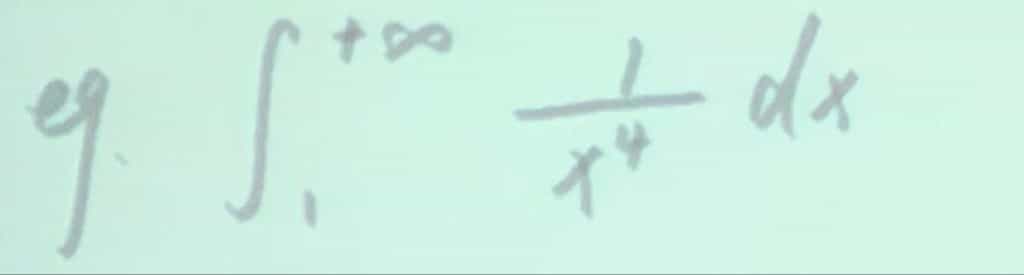 eg. ∫₁^{+∞} 1/x⁴ dx